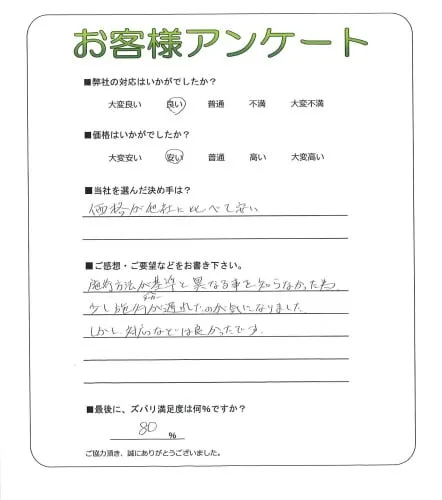 お客様アンケート
■弊社の対応はいかがでしたか?
大変良い 良い 普通 不満 大変不満
■価格はいかがでしたか?
大変安い 安い 普通 高い 大変高い
■当社を選んだ決め手は?
価格が他社に比べて安い
■ご感想・ご要望などをお書き下さい。
施術方法が基準と異なる事を知らなかった為、
少し施術が遅れたのが気になりました
しかし対応などは良かったです。
■最後に、ズバリ満足度は何%ですか?
80 %
ご協力頂き、誠にありがとうございました。